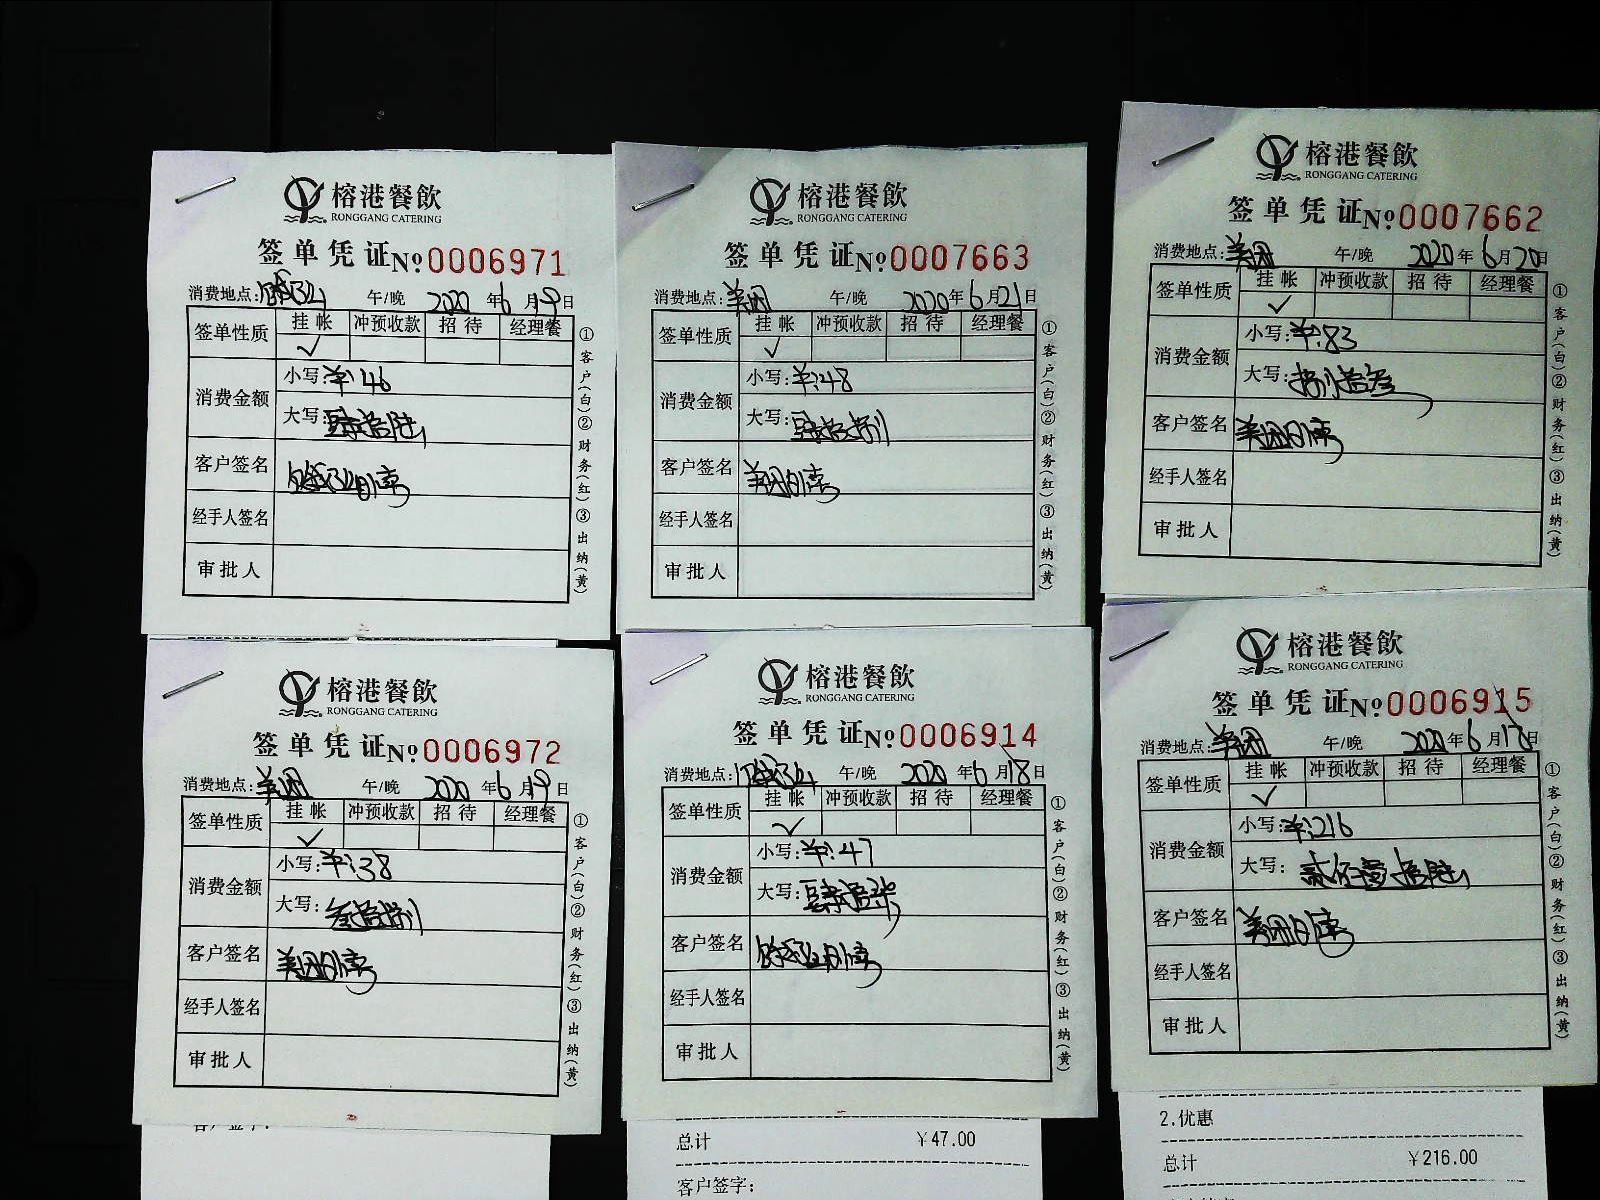 榕港餐飲
RONGGANG CATERING
签单凭证№0006971
消费地点:饿了么 午/晚 2020年6月19日
签单性质 挂帐 冲预收款 招待 经理餐
✓
消费金额 小写:¥:46
大写:肆拾陆
客户签名
经手人签名
审批人
①客户(白)②财务(红)③出纳(黄)
榕港餐飲
RONGGANG CATERING
签单凭证№0007663
消费地点:美团 午/晚 2020年6月21日
签单性质 挂帐 冲预收款 招待 经理餐
✓
消费金额 小写:¥:48
大写:肆拾捌
客户签名 美团
经手人签名
审批人
①客户(白)②财务(红)③出纳(黄)
榕港餐飲
RONGGANG CATERING
签单凭证№0007662
消费地点:美团 午/晚 2020年6月20日
签单性质 挂帐 冲预收款 招待 经理餐
✓
消费金额 小写:¥:83
大写:捌拾叁
客户签名 美团
经手人签名
审批人
①客户(白)②财务(红)③出纳(黄)
榕港餐飲
RONGGANG CATERING
签单凭证№0006972
消费地点:美团 午/晚 2020年6月19日
签单性质 挂帐 冲预收款 招待 经理餐
✓
消费金额 小写:¥:38
大写:叁拾捌
客户签名 美团
经手人签名
审批人
①客户(白)②财务(红)③出纳(黄)
榕港餐飲
RONGGANG CATERING
签单凭证№0006914
消费地点:饿了么 午/晚 2020年6月18日
签单性质 挂帐 冲预收款 招待 经理餐
✓
消费金额 小写:¥:47
大写:肆拾柒
客户签名
经手人签名
审批人
①客户(白)②财务(红)③出纳(黄)
总计 ¥47.00
客户签字:
榕港餐飲
RONGGANG CATERING
签单凭证№0006915
消费地点:美团 午/晚 2020年6月18日
签单性质 挂帐 冲预收款 招待 经理餐
✓
消费金额 小写:¥:216
大写:贰佰壹拾陆
客户签名 美团
经手人签名
审批人
①客户(白)②财务(红)③出纳(黄)
2.优惠
总计 ¥216.00